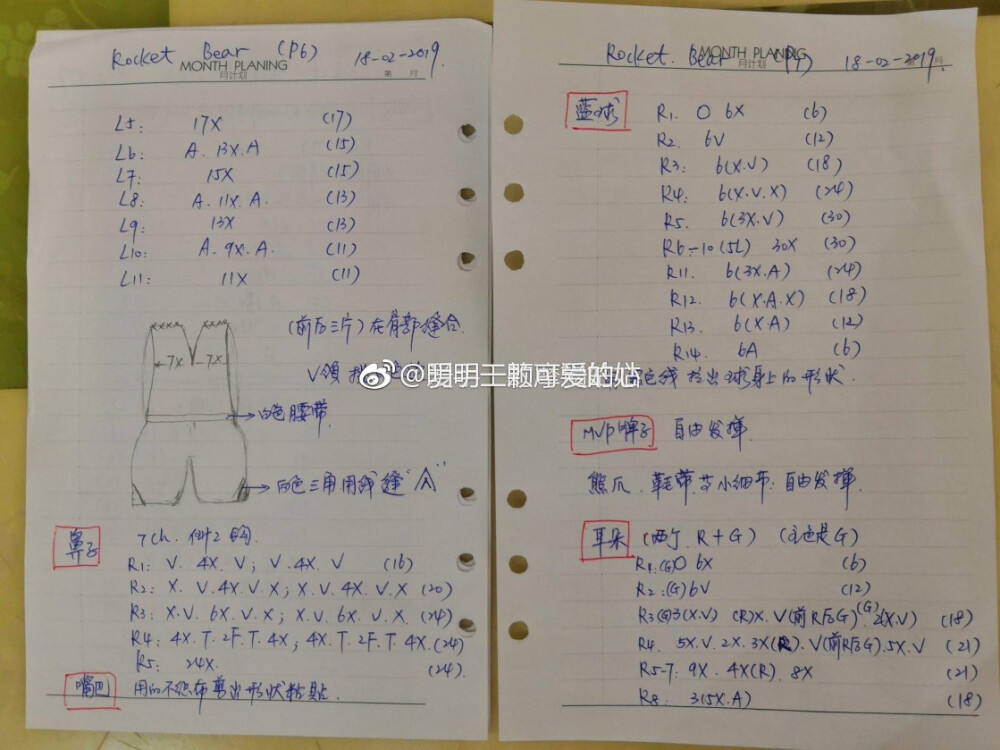 Rocket Bear (P6) 18-02-2019.
MONTH PLANING
月计划 第 月
L5: 17X (17)
L6: A. 13X. A (15)
L7: 15X (15)
L8: A. 11X. A. (13)
L9: 13X (13)
L10: A. 9X. A. (11)
L11: 11X (11)
(前后三片) 在肩部缝合
V领
←7X ←7X→
→白色腰带.
→白色三角用线缝"A"
鼻子 7ch. 倒2钩.
R1: V. 4X. V; V. 4X. V (16)
R2: X. V. 4X. V. X; X. V. 4X. V. X (20)
R3: X. V. 6X. V. X; X. V. 6X. V. X (24)
R4: 4X. T. 2F. T. 4X; 4X. T. 2F. T. 4X. (24)
R5: 24X. (24)
嘴巴 用白不织布剪出形状粘贴.
Rocket. Bear (P7) 18-02-2019.
MONTH PLANING
月计划 月
蓝球 R1. O 6X (6)
R2. 6V (12)
R3: 6(X.V) (18)
R4: 6(X.V.X) (24)
R5. 6(3X.V) (30)
R6-10 (5L) 30X (30)
R11. 6(3X.A) (24)
R12. 6(X.A.X) (18)
R13. 6(X.A) (12)
R14. 6A (6)
色线 出球身上的形状.
@明明王颗摩爱的咕
MVP牌子 自由发挥
熊爪. 鞋带 等小细节: 自由发挥.
耳朵 (两个. R+G) (主色是G)
R1: (G) O 6X (6)
R2: (G) 6V (12)
R3 (G) 3(X.V) (R)X. V(前R后G) (G) 2(X.V) (18)
R4. 5X. V. 2X. 3X(R). V(前R后G). 5X. V (21)
R5-7: 9X. 4X(R). 8X (21)
R8. 3(5X.A) (18)